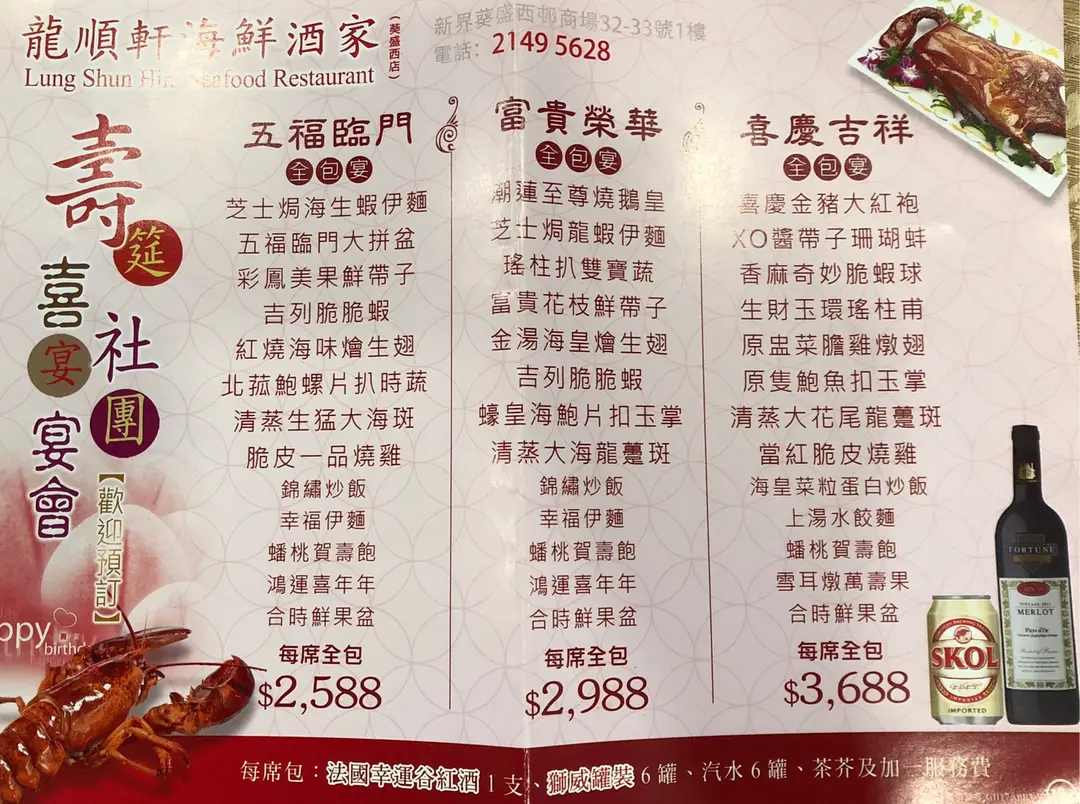 龍順軒海鮮酒家
(葵盛西店)
Lung Shun Hin Seafood Restaurant
新界葵盛西邨商場32-33號1樓
電話: 2149 5628
壽筵
喜宴
社團
宴會
【歡迎預訂】
五福臨門
全包宴
芝士焗海生蝦伊麵
五福臨門大拼盆
彩鳳美果鮮帶子
吉列脆脆蝦
紅燒海味燴生翅
北菰鮑螺片扒時蔬
清蒸生猛大海斑
脆皮一品燒雞
錦繡炒飯
幸福伊麵
蟠桃賀壽飽
鴻運喜年年
合時鮮果盆
每席全包
$2,588
富貴榮華
全包宴
潮蓮至尊燒鵝皇
芝士焗龍蝦伊麵
瑤柱扒雙寶蔬
富貴花枝鮮帶子
金湯海皇燴生翅
吉列脆脆蝦
蠔皇海鮑片扣玉掌
清蒸大海龍躉斑
錦繡炒飯
幸福伊麵
蟠桃賀壽飽
鴻運喜年年
合時鮮果盆
每席全包
$2,988
喜慶吉祥
全包宴
喜慶金豬大紅袍
XO醬帶子珊瑚蚌
香麻奇妙脆蝦球
生財玉環瑤柱甫
原盅菜膽雞燉翅
原隻鮑魚扣玉掌
清蒸大花尾龍躉斑
當紅脆皮燒雞
海皇菜粒蛋白炒飯
上湯水餃麵
蟠桃賀壽飽
雪耳燉萬壽果
合時鮮果盆
每席全包
$3,688
ppy
birthd
SKOL
IMPORTED
FORTUNE
MERLOT
Pays d'Oc
每席包：法國幸運谷紅酒1支、獅威罐裝6罐、汽水6罐、茶芥及加一服務費